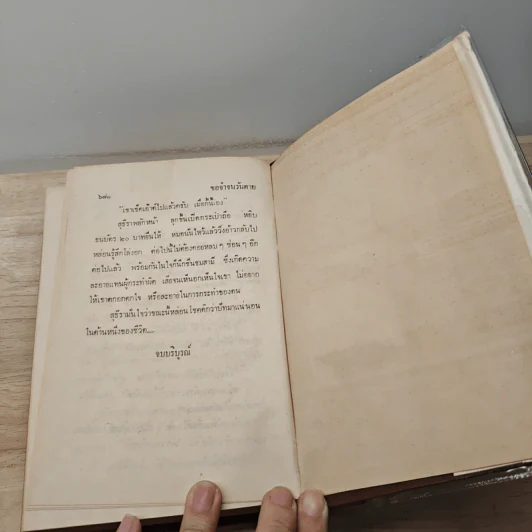 ๖๗๐
ขอจำจนวันตาย
"เขาเช็คเอ๊าท์ไปแล้วครับ เมื่อกี้นี้เอง"
สุธีราพลักหน้า ลุกขึ้นเปิดกระเป๋าถือ หยิบ
ธนบัตร ๒๐ บาทยื่นให้ หมอนั่นไหว้แล้ววิ่งอ้าวกลับไป
หล่อนรู้สึกโล่งอก ต่อไปนี้ไม่ต้องคอยหลบ ๆ ซ่อน ๆ อีก
ต่อไปแล้ว พร้อมกันในใจก็นึกชื่นชมสามี ซึ่งเกิดความ
ละอายแทนผู้กระทำผิด เลือจนเหนือกเห็นใจเขา ไม่อยาก
ให้เขาตกอกตกใจ หรือละอายในการกระทำของตน
สุธีรามั่นใจว่าขณะนี้หล่อนโชคดีกว่าปัทมาแน่นอน
ในด้านหนึ่งของชีวิต....
จบบริบูรณ์